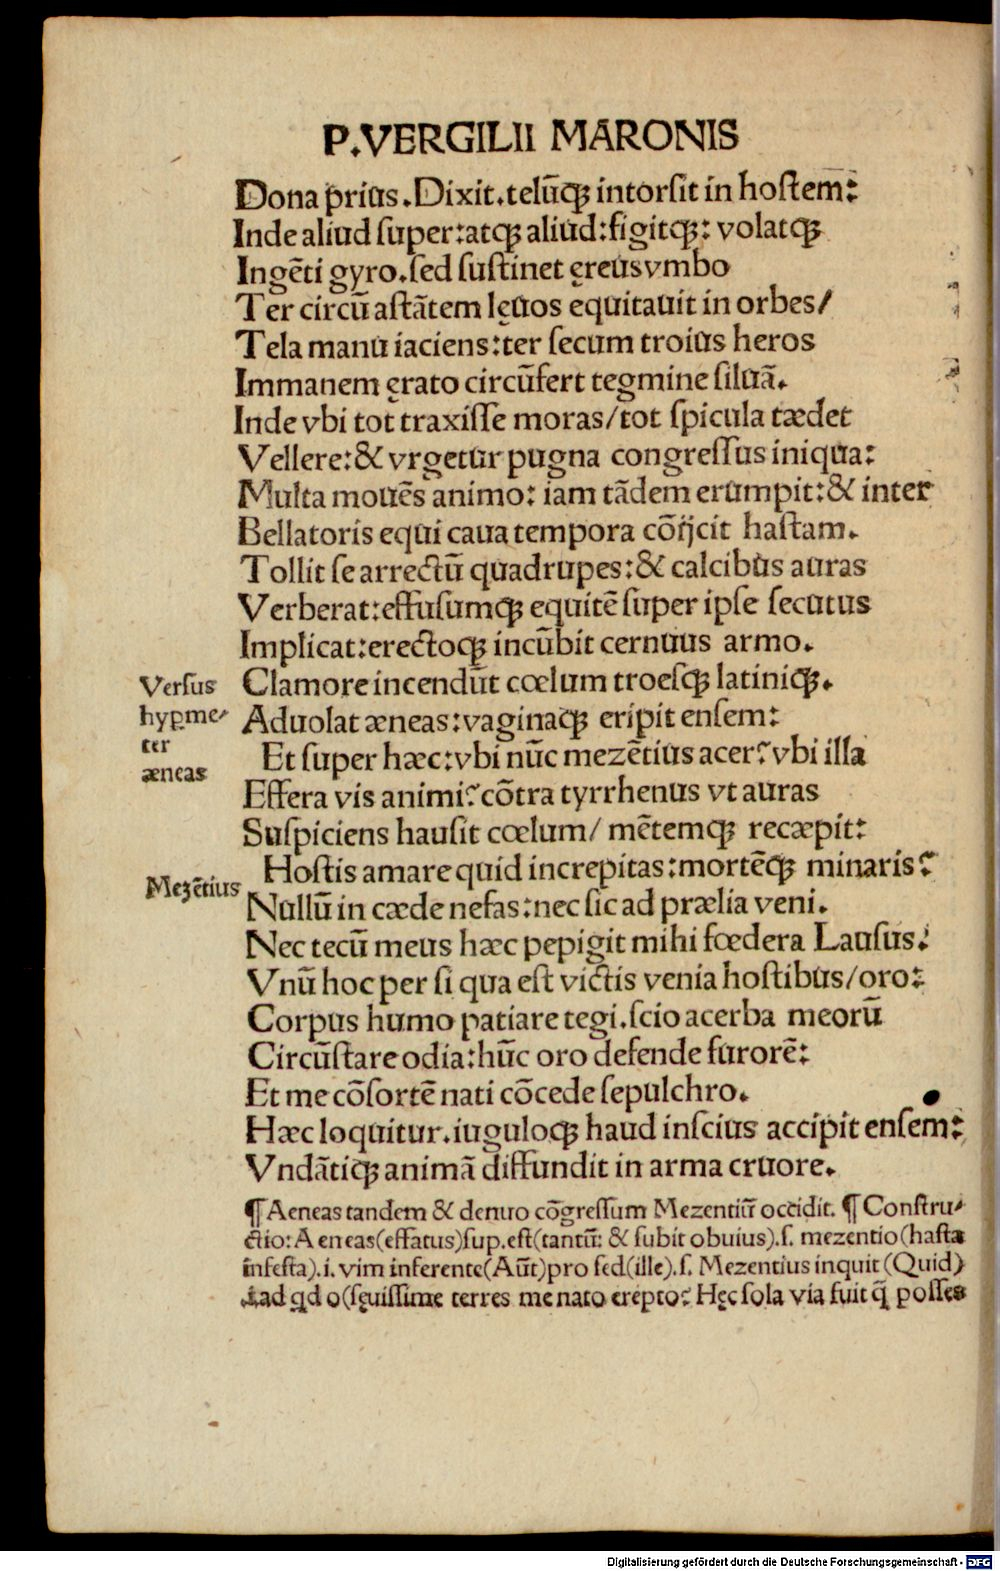 P.VERGILII MARONIS
Dona prius.Dixit.telūqꝫ intorsit in hostem:
Inde aliud super:atqꝫ aliud:figitqꝫ: volatqꝫ
Ingēti gyro.sed sustinet ęreus vmbo
Ter circū astātem lęuos equitauit in orbes/
Tela manu iaciens:ter secum troius heros
Immanem ęrato circūfert tegmine siluā.
Inde vbi tot traxisse moras/tot spicula tædet
Vellere:& vrgetur pugna congressus iniqua:
Multa mouēs animo: iam tādem erumpit:& inter
Bellatoris equi caua tempora cōijcit hastam.
Tollit se arrectū quadrupes:& calcibus auras
Verberat:effusumqꝫ equitē super ipse secutus
Implicat:erectoqꝫ incūbit cernuus armo.
Versus
hyꝑme/
ter
æneas
Clamore incendūt cœlum troesqꝫ latiniqꝫ.
Aduolat æneas:vaginaqꝫ eripit ensem:
Et super hæc:vbi nūc mezētius acer? vbi illa
Effera vis animi? cōtra tyrrhenus vt auras
Suspiciens hausit cœlum/ mētemqꝫ recæpit:
Mezētius
Hostis amare quid increpitas:mortēqꝫ minaris?
Nullū in cæde nefas:nec sic ad prælia veni.
Nec tecū meus hæc pepigit mihi fœdera Lausus:
Vnū hoc per si qua est victis venia hostibus/oro:
Corpus humo patiare tegi.scio acerba meorū
Circūstare odia:hūc oro defende furorē:
Et me cōsortē nati cōcede sepulchro.
Hæc loquitur.iuguloqꝫ haud inscius accipit ensem:
Vndātiqꝫ animā diffundit in arma cruore.
¶ Aeneas tandem & denuo cōgressum Mezentiū occidit. ¶ Constru/
ctio: Aeneas(effatus)sup.est(tantū: & subit obuius).s. mezentio(hasta
infesta).i. vim inferente(Aūt)pro sed(ille).s. Mezentius inquit(Quid)
.i.ad qd o(sęuissime terres me nato erepto? Hęc sola via fuit q̄ posses
Digitalisierung gefördert durch die Deutsche Forschungsgemeinschaft - DFG